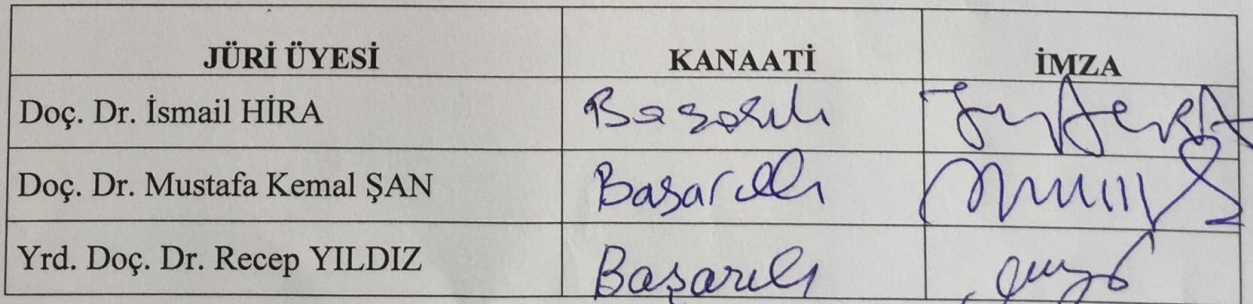 JÜRİ ÜYESİ KANAATİ İMZA
Doç. Dr. İsmail HİRA Başarılı
Doç. Dr. Mustafa Kemal ŞAN Başarılı
Yrd. Doç. Dr. Recep YILDIZ Başarılı